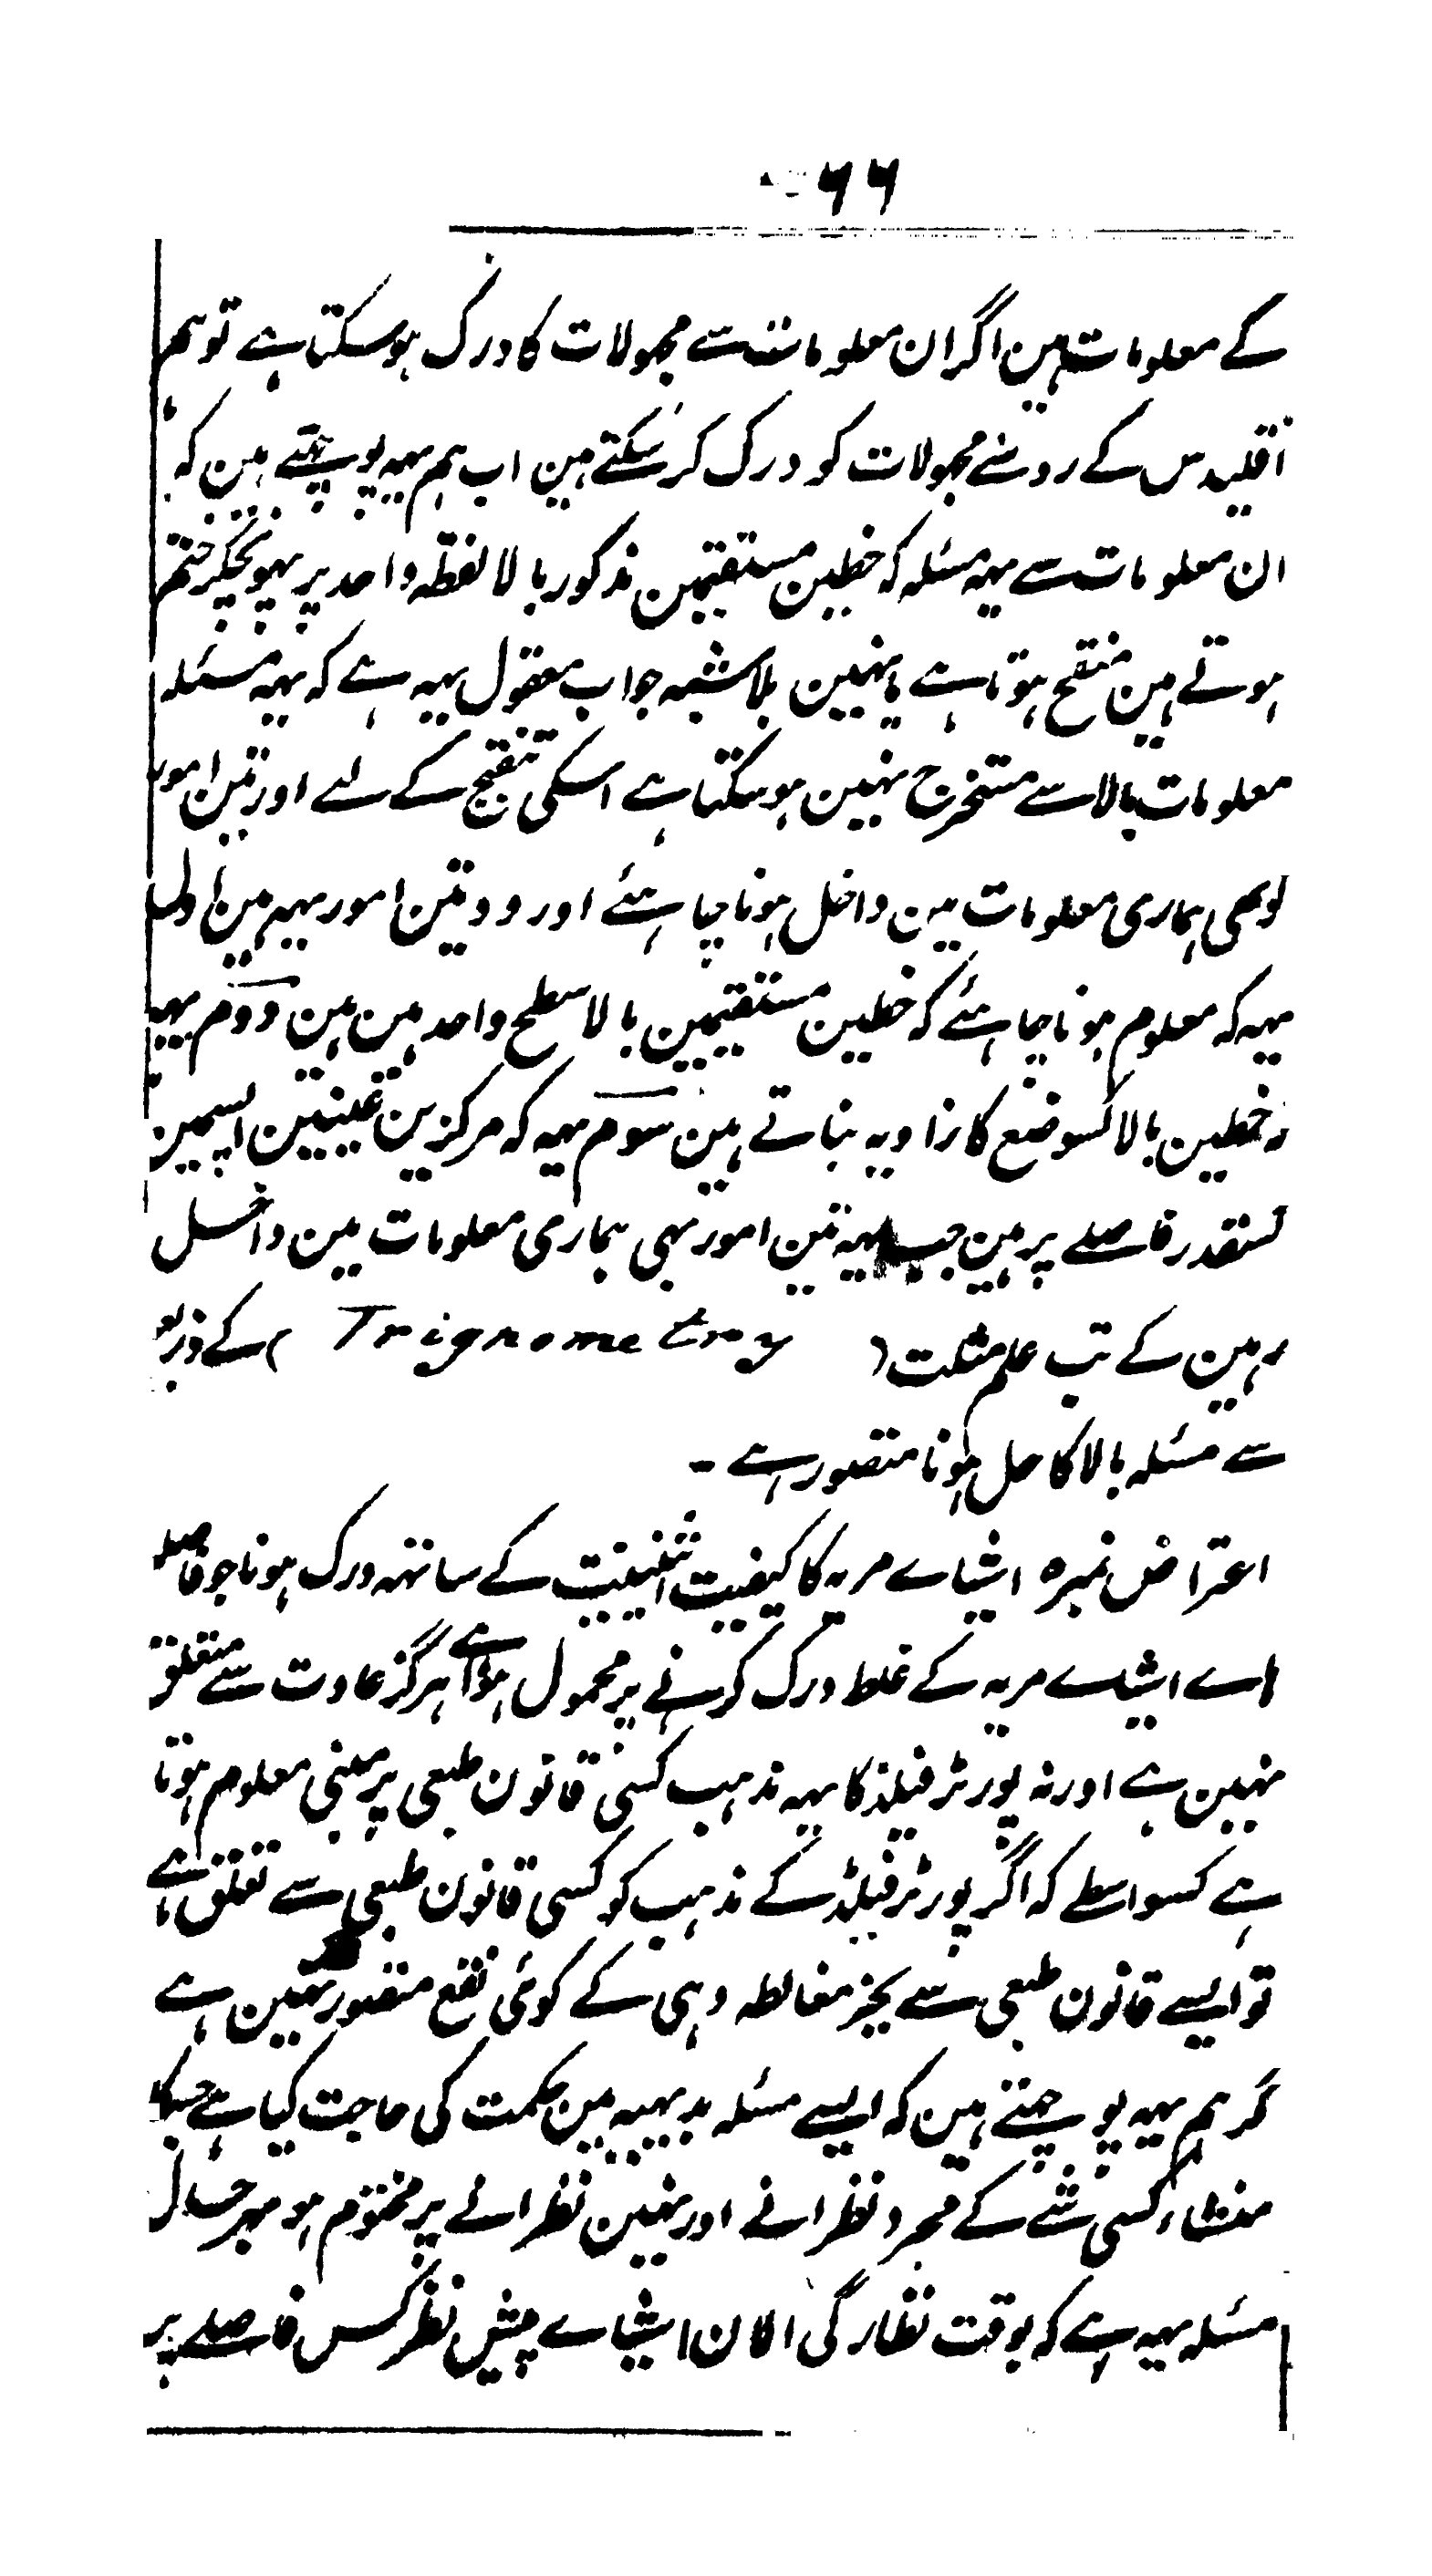 ۶۶
کے معلومات ہین اگر ان معلومات سے مجہولات کا درک ہو سکتا ہے تو ہم
اقلیدس کے رو سے مجہولات کو درک کر سکتے ہین اب ہم یہہ پوچہتے ہین کہ
ان معلومات سے یہہ مسئلہ کہ خطین مستقیمین مذکور بالا نقطہ واحد پر پہونچکر ختم
ہوتے ہین منقح ہوتا ہے یا نہین بلا شبہہ جواب معقول یہہ ہے کہ یہہ مسئلہ
معلومات بالا سے متخرج نہین ہو سکتا ہے اسکی تنقیح کے لے اور تین امور
کو بھی ہماری معلومات مین داخل ہونا چاہئے اور وہ تین امور یہہ ہین اول
یہہ کہ معلوم ہونا چاہئے کہ خطین مستقیمین بالا سطح واحد مین ہین دوم یہہ
کہ خطین بالا کسوضع کا زاویہ بناتے ہین سوم یہہ کہ مرکزین عینیین اپسمین
کسقدر فاصلے پر ہین جب یہہ تین امور بہی ہماری معلومات مین داخل
رہین کے تب علم مثلث ( Trignometry ) کے ذریعہ
سے مسئلہ بالا کا حل ہونا متصور ہے -
اعتراض نمبر ۵ اشیاے مریہ کا کیفیت اثنینیت کے ساتہہ درک ہونا جو فاصلہ
ہاے اشیاے مریہ کے غلط درک کرنے پر محمول ہوا ہے ہرگز عادت سے متعلق
نہین ہے اور نہ پورٹر فیلڈ کا یہہ مذہب کسی قانون طبعی پر مبنی معلوم ہوتا
ہے کسواسطے کہ اگر پورٹر فیلڈ کے مذہب کو کسی قانون طبعی سے تعلق ہے
تو ایسے قانون طبعی سے بجز مغالطہ دہی کے کوئی نفع متصور نہین ہے
مگر ہم یہہ پوچہتے ہین کہ ایسے مسئلہ بدیہیہ مین حکمت کی حاجت کیا ہے جسکا
منشاء کسی شے کے مجرد نظر انے اور نہین نظر انے پر مختوم ہو بہر حال
مسئلہ یہہ ہے کہ بوقت نظارگی الان اشیاے پیش نظر کس فاصلے پر